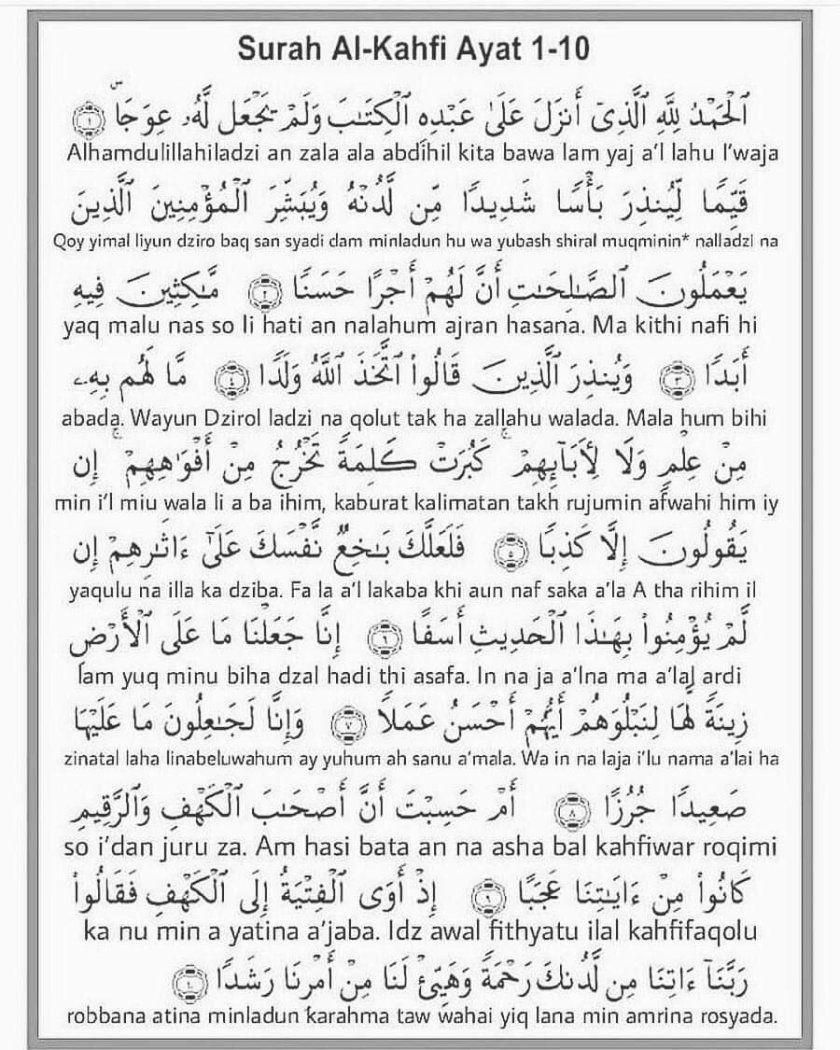 Surah Al-Kahfi Ayat 1-10
ٱلْحَمْدُ لِلَّهِ ٱلَّذِىٓ أَنزَلَ عَلَىٰ عَبْدِهِ ٱلْكِتَـٰبَ وَلَمْ يَجْعَل لَّهُۥ عِوَجَاۜ ١
Alhamdulillahiladzi an zala ala abdihil kita bawa lam yaj a'l lahu l'waja
قَيِّمًا لِّيُنذِرَ بَأْسًا شَدِيدًا مِّن لَّدُنْهُ وَيُبَشِّرَ ٱلْمُؤْمِنِينَ ٱلَّذِينَ
Qoy yimal liyun dziro baq san syadi dam minladun hu wa yubash shiral muqminin* nalladzi na
يَعْمَلُونَ ٱلصَّـٰلِحَـٰتِ أَنَّ لَهُمْ أَجْرًا حَسَنًا ٢ مَّـٰكِثِينَ فِيهِ
yaq malu nas so li hati an nalahum ajran hasana. Ma kithi nafi hi
أَبَدًا ٣ وَيُنذِرَ ٱلَّذِينَ قَالُوا۟ ٱتَّخَذَ ٱللَّهُ وَلَدًا ٤ مَّا لَهُم بِهِۦ
abada. Wayun Dzirol ladzi na qolut tak ha zallahu walada. Mala hum bihi
مِنْ عِلْمٍ وَلَا لِأَبَآئِهِمْ ۚ كَبُرَتْ كَلِمَةً تَخْرُجُ مِنْ أَفْوَٰهِهِمْ ۚ إِن
min i'l miu wala li a ba ihim, kaburat kalimatan takh rujumin afwahi him iy
يَقُولُونَ إِلَّا كَذِبًا ٥ فَلَعَلَّكَ بَـٰخِعٌ نَّفْسَكَ عَلَىٰٓ ءَاثَـٰرِهِمْ إِن
yaqulu na illa ka dziba. Fa la a'l lakaba khi aun naf saka a'la A tha rihim il
لَّمْ يُؤْمِنُوا۟ بِهَـٰذَا ٱلْحَدِيثِ أَسَفًا ٦ إِنَّا جَعَلْنَا مَا عَلَى ٱلْأَرْضِ
lam yuq minu biha dzal hadi thi asafa. In na ja a'lna ma a'lal ardi
زِينَةً لَّهَا لِنَبْلُوَهُمْ أَيُّهُمْ أَحْسَنُ عَمَلًا ٧ وَإِنَّا لَجَـٰعِلُونَ مَا عَلَيْهَا
zinatal laha linabeluwahum ay yuhum ah sanu a'mala. Wa in na laja i'lu nama a'lai ha
صَعِيدًا جُرُزًا ٨ أَمْ حَسِبْتَ أَنَّ أَصْحَـٰبَ ٱلْكَهْفِ وَٱلرَّقِيمِ
so i'dan juru za. Am hasi bata an na asha bal kahfiwar roqimi
كَانُوا۟ مِنْ ءَايَـٰتِنَا عَجَبًا ٩ إِذْ أَوَى ٱلْفِتْيَةُ إِلَى ٱلْكَهْفِ فَقَالُوا۟
ka nu min a yatina a'jaba. Idz awal fithyatu ilal kahfifaqolu
رَبَّنَآ ءَاتِنَا مِن لَّدُنكَ رَحْمَةً وَهَيِّئْ لَنَا مِنْ أَمْرِنَا رَشَدًا ١٠
robbana atina minladun karahma taw wahai yiq lana min amrina rosyada.